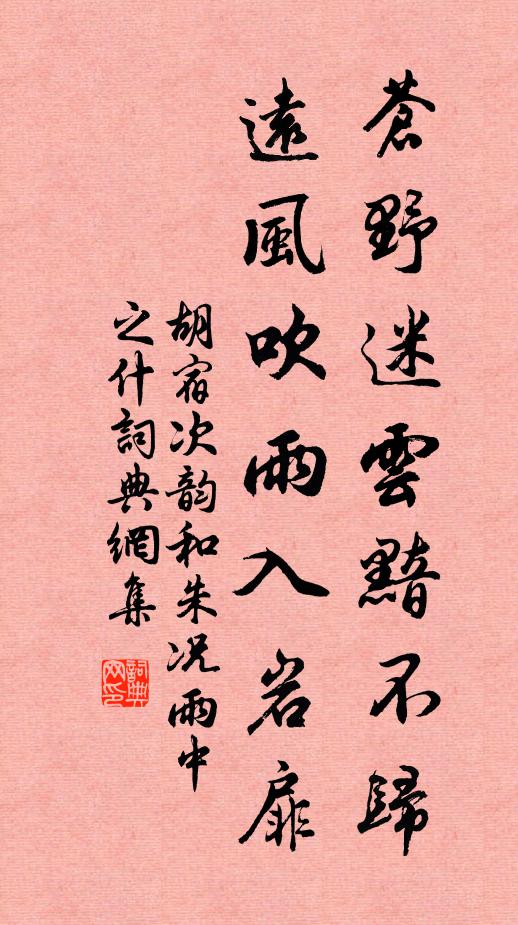 蒼野迷雲黯不歸
遠風吹雨入岩扉
胡宿次韵和朱況雨中
之什詞典網集
詞典
网印